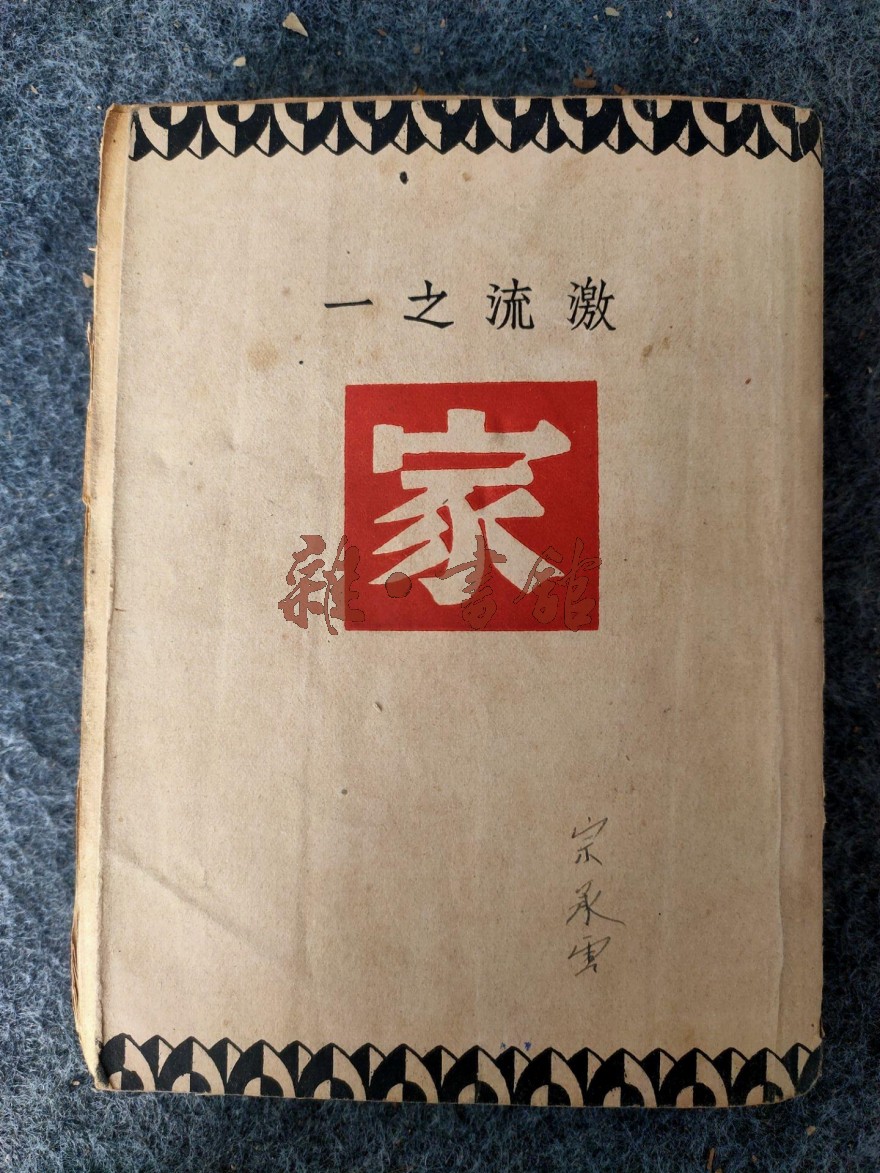 激流之一
家
雜·書館
宗承